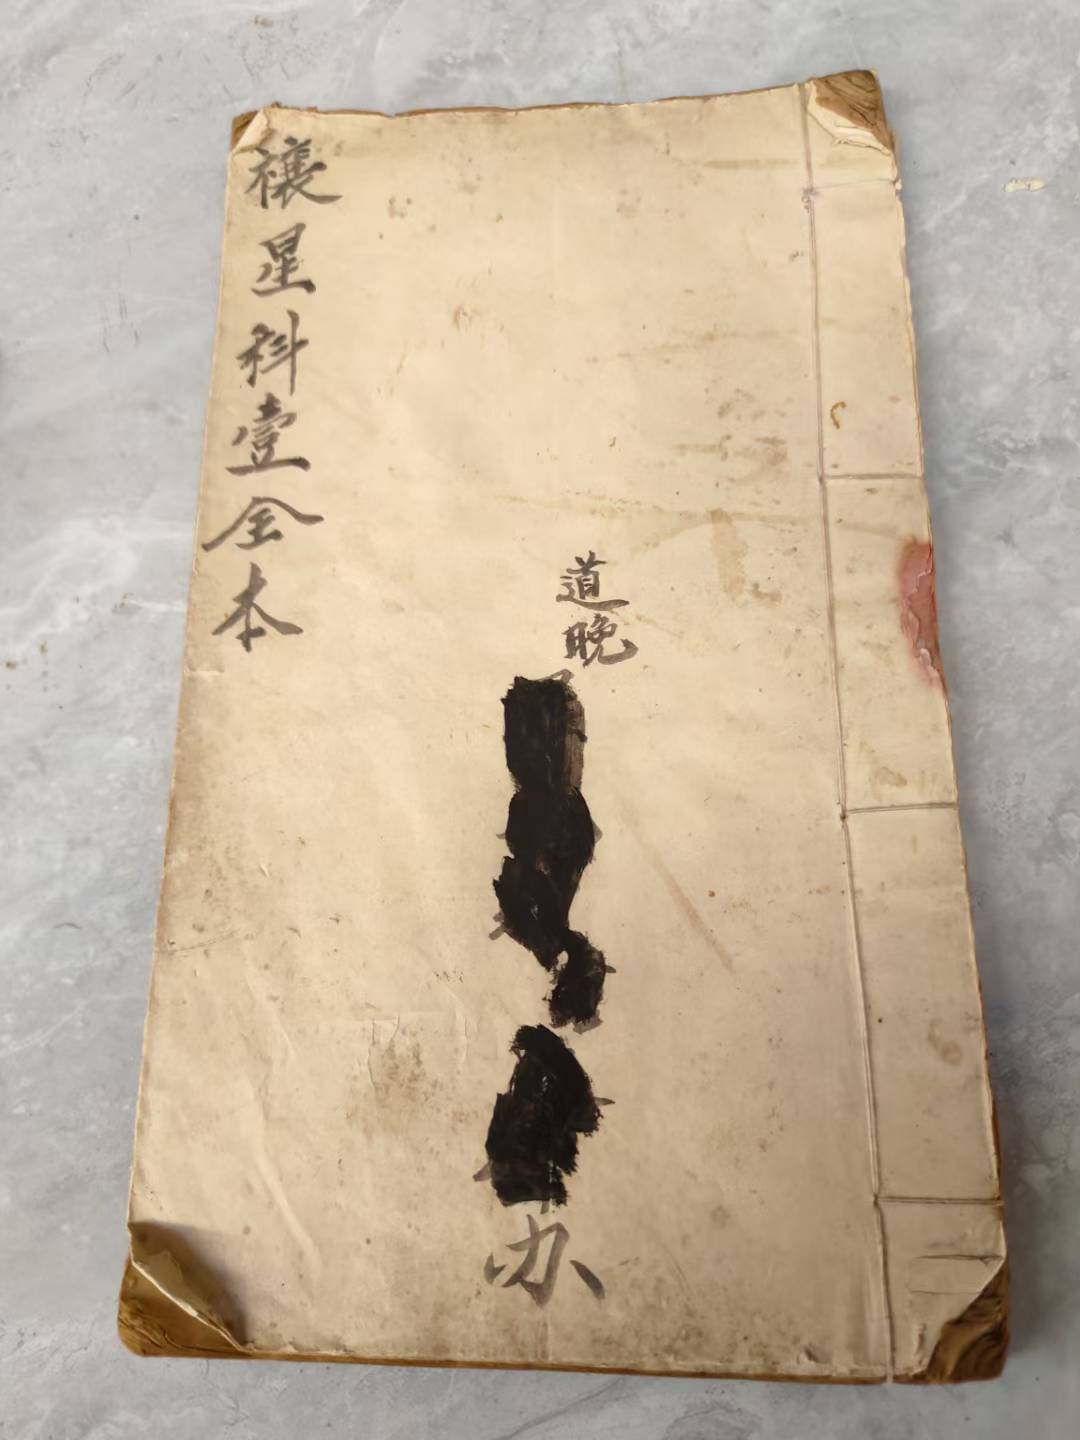 禳星科壹全本
道晚
办